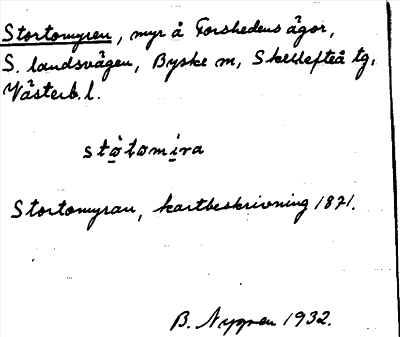 Stortomyren, myr å Forshedens ägor,
S. landsvägen, Byske sn, Skellefteå tg,
Västerb. l.
stò̤tomi̤ra
Stortomyran, kartbeskrivning 1871.
B. Nygren 1932.